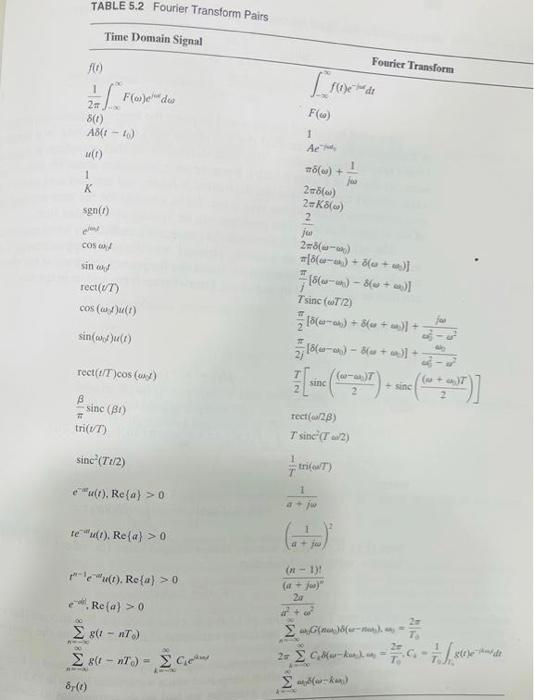 TABLE 5.2 Fourier Transform Pairs
Time Domain Signal    Fourier Transform
f(t)    ∫_{-∞}^{∞} f(t)e^{-jωt} dt
1/2π ∫_{-∞}^{∞} F(ω)e^{jωt} dω    F(ω)
δ(t)    1
Aδ(t − t₀)    Ae^{-jωt₀}
u(t)    πδ(ω) + 1/jω
1    2πδ(ω)
K    2πKδ(ω)
sgn(t)    2/jω
e^{jω₀t}    2πδ(ω−ω₀)
cos ω₀t    π[δ(ω−ω₀) + δ(ω + ω₀)]
sin ω₀t    π/j [δ(ω−ω₀) − δ(ω + ω₀)]
rect(t/T)    T sinc (ωT/2)
cos (ω₀t)u(t)    π/2 [δ(ω−ω₀) + δ(ω + ω₀)] + jω/(ω₀² − ω²)
sin(ω₀t)u(t)    π/2j [δ(ω−ω₀) − δ(ω + ω₀)] + ω₀/(ω₀² − ω²)
rect(t/T)cos (ω₀t)    T/2 [sinc ((ω−ω₀)T/2) + sinc ((ω + ω₀)T/2)]
β/π sinc (βt)    rect(ω/2β)
tri(t/T)    T sinc²(T ω/2)
sinc²(Tt/2)    1/T tri(ω/T)
e^{-at}u(t), Re{a} > 0    1/(a + jω)
te^{-at}u(t), Re{a} > 0    (1/(a + jω))²
t^{n-1}e^{-at}u(t), Re{a} > 0    (n − 1)!/(a + jω)ⁿ
e^{-a|t|}, Re{a} > 0    2a/(a² + ω²)
∑_{n=-∞}^{∞} g(t − nT₀)    ∑_{n=-∞}^{∞} ω₀G(nω₀)δ(ω−nω₀), ω₀ = 2π/T₀
∑_{n=-∞}^{∞} g(t − nT₀) = ∑_{k=-∞}^{∞} C_k e^{jkω₀t}    2π ∑_{k=-∞}^{∞} C_k δ(ω−kω₀), ω₀ = 2π/T₀, C_k = 1/T₀ ∫_{T₀} g(t)e^{-jkω₀t} dt
δ_T(t)    ∑_{k=-∞}^{∞} ω₀δ(ω−kω₀)